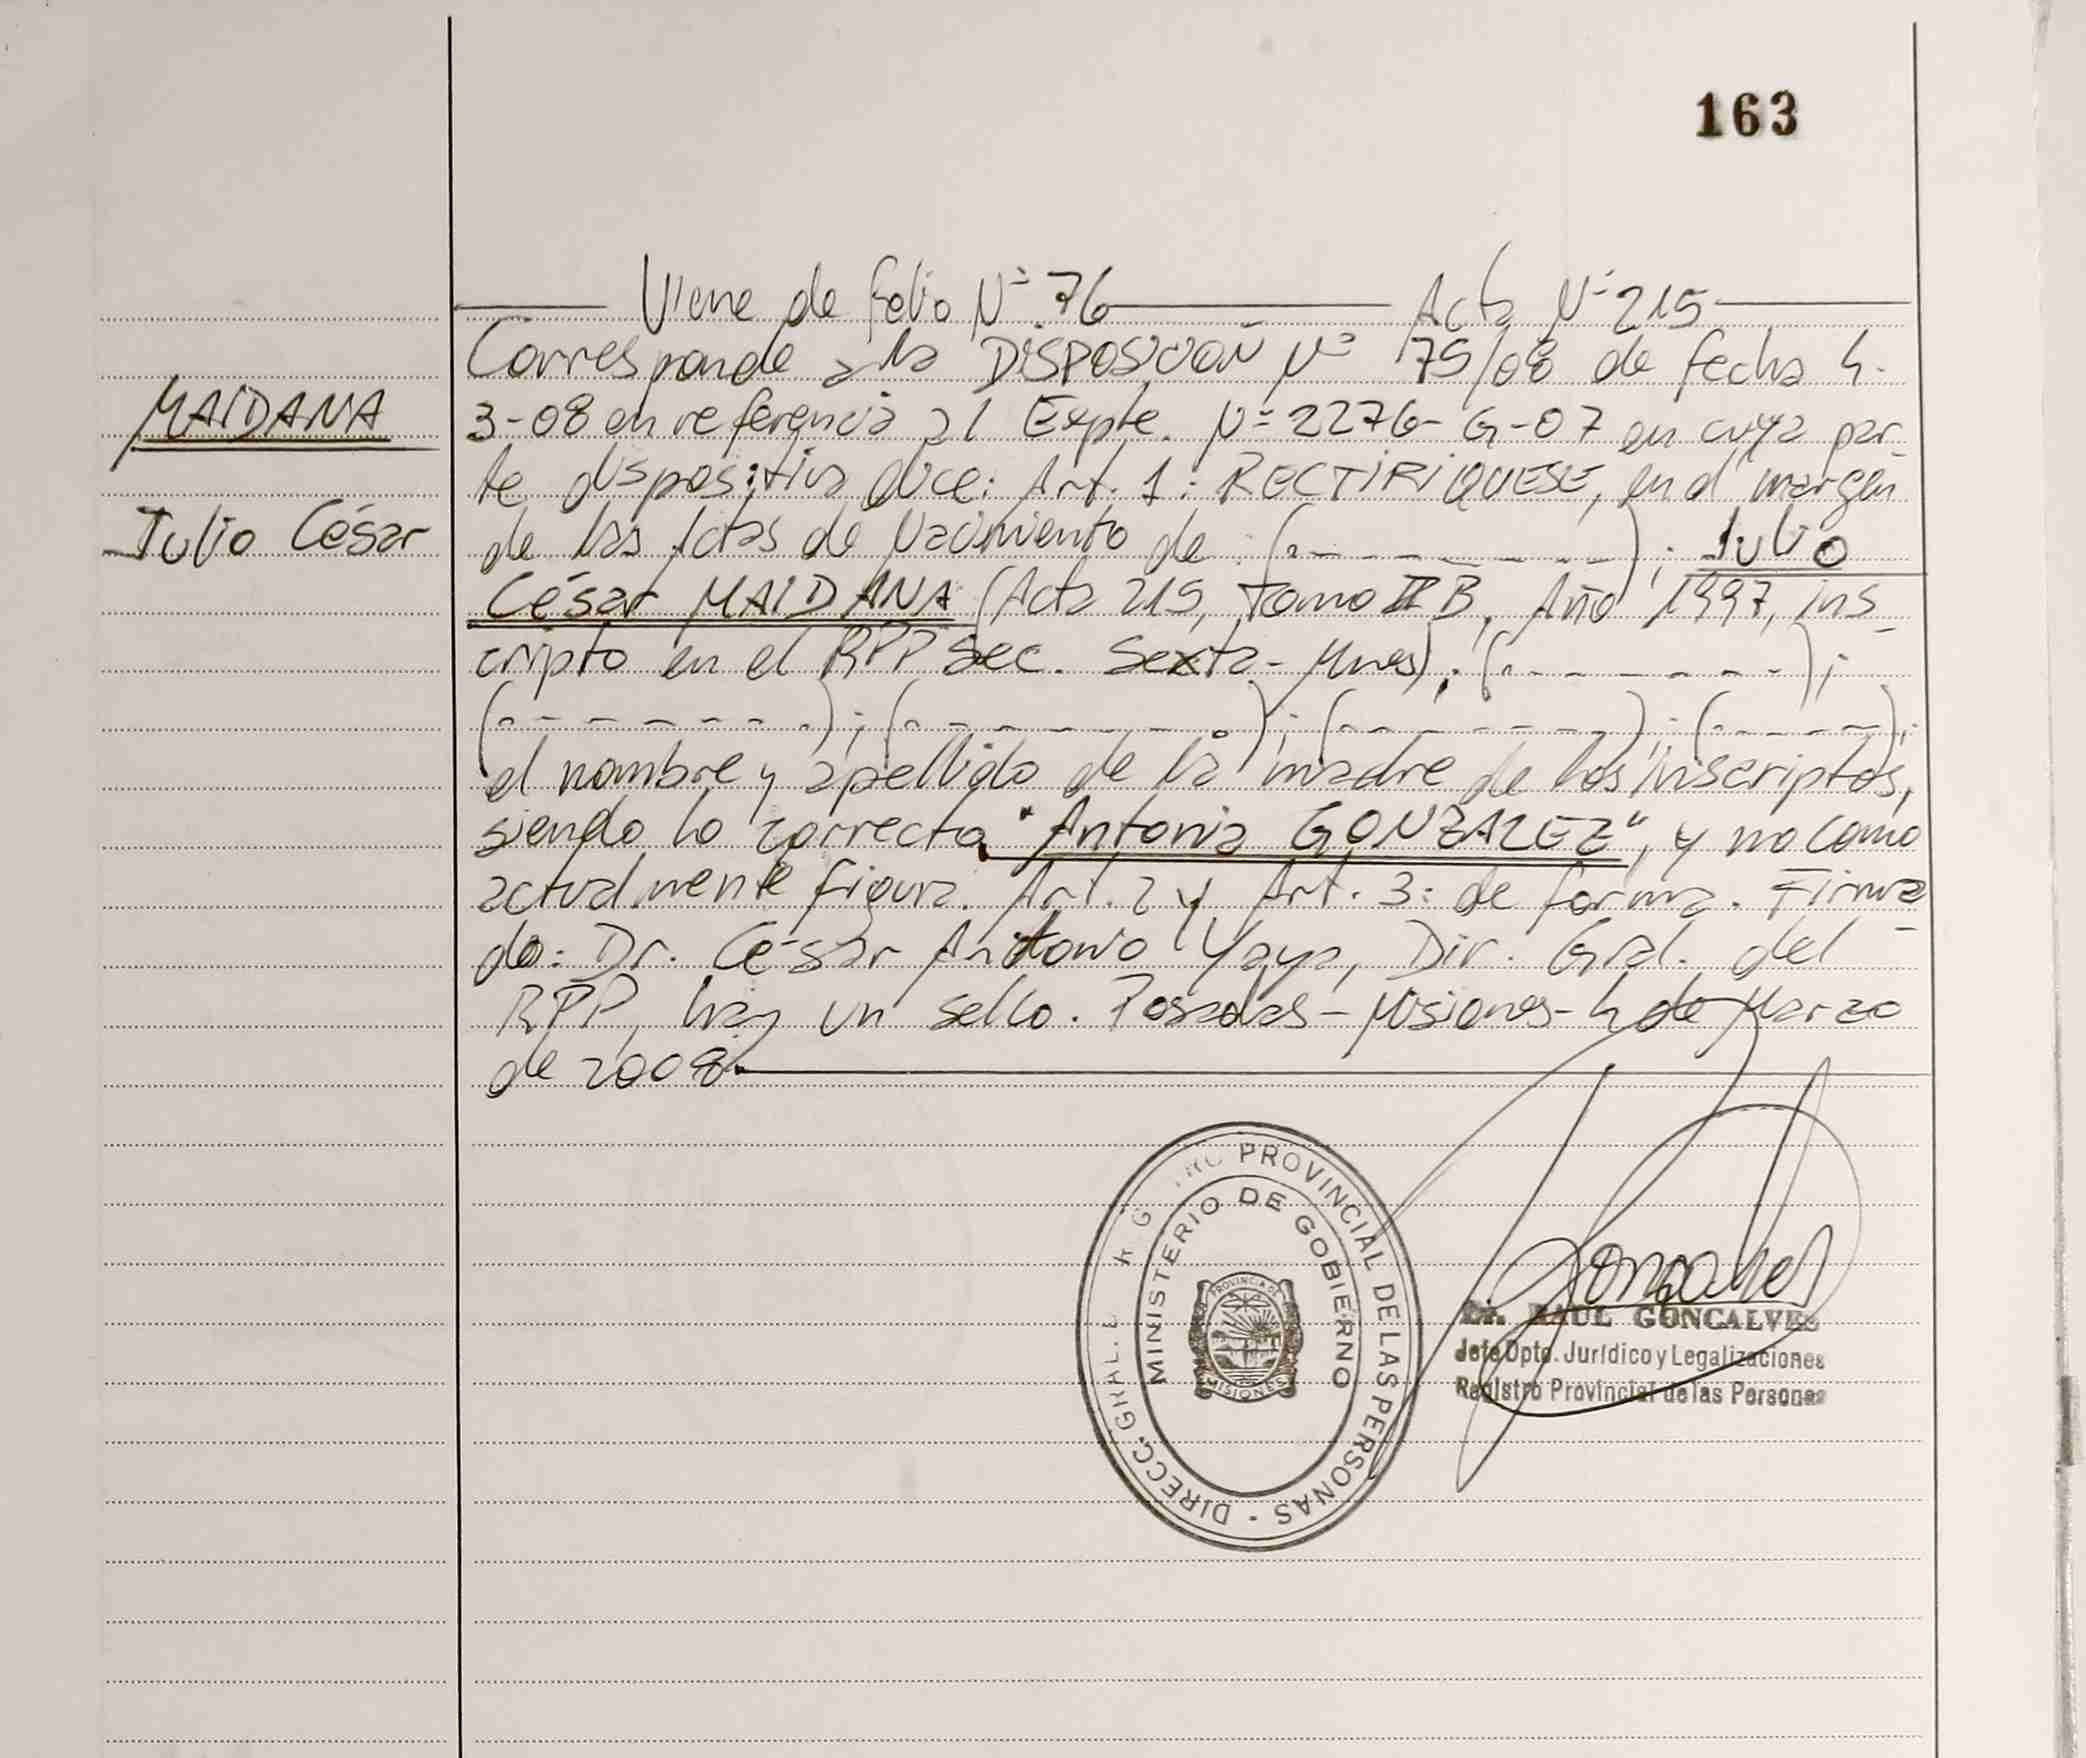 163
Viene de folio Nº 76 Acta Nº 215
Corresponde a la DISPOSICION Nº 75/08 de fecha 4-
MAIDANA
3-08 en referencia al Expte. Nº 2276-G-07 en cuya par-
te dispositiva dice: Art. 1: RECTIRIQUESE, en el margen
Julio César
de las Actas de Nacimiento de: (- - - - - - - - -); Julio
César MAIDANA (Acta 215, Tomo II B, Año 1997, ins-
cripto en el RPP Sec. Sexta - Mnes); (- - - - - - -);
(- - - - - - - -); (- - - - - - - - -); (- - - - - - - -); (- - - - -);
el nombre y apellido de la madre de los inscriptos,
siendo lo correcto "Antonia GONZALEZ", y no como
actualmente figura. Art. 2 y Art. 3: de forma. Firma-
do: Dr. César Antonio Yaya, Dir. Gral. del
RPP, hay un sello. Posadas - Misiones - 4 de Marzo
de 2008.
DIRECC. GRAL. PROVINCIAL DE LAS PERSONAS
MINISTERIO DE GOBIERNO
PROVINCIA DE
MISIONES
Goncalves
Dr. RAUL GONCALVES
Jefe Dpto. Jurídico y Legalizaciones
Registro Provincial de las Personas